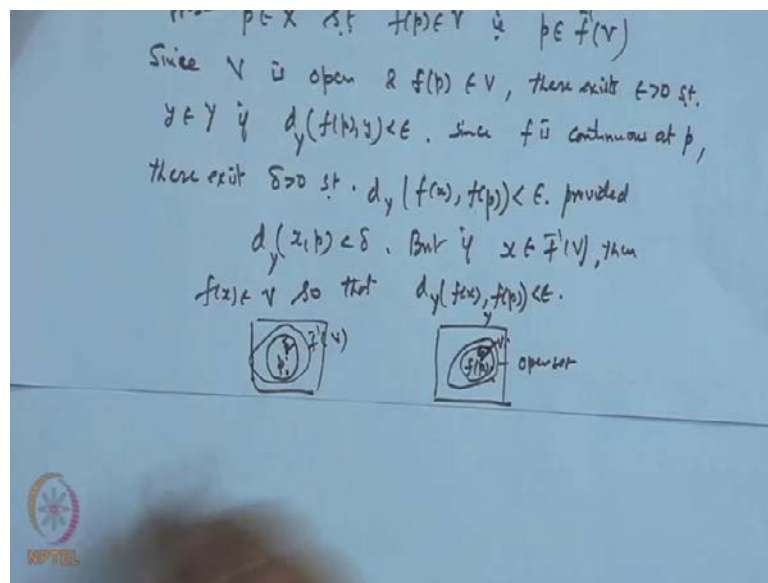 p ∈ X st f(p) ∈ V ie p ∈ f⁻¹(V)
Since V is open & f(p) ∈ V, there exists ε>0 st.
y ∈ Y if d_y(f(p), y) < ε. Since f is continuous at p,
there exist δ>0 st. d_y(f(x), f(p)) < ε. provided
d_y(x, p) < δ. But if x ∈ f⁻¹(V), then
f(x) ∈ V so that d_y(f(x), f(p)) < ε.
p f⁻¹(V) y V f(p) open set
NPTEL